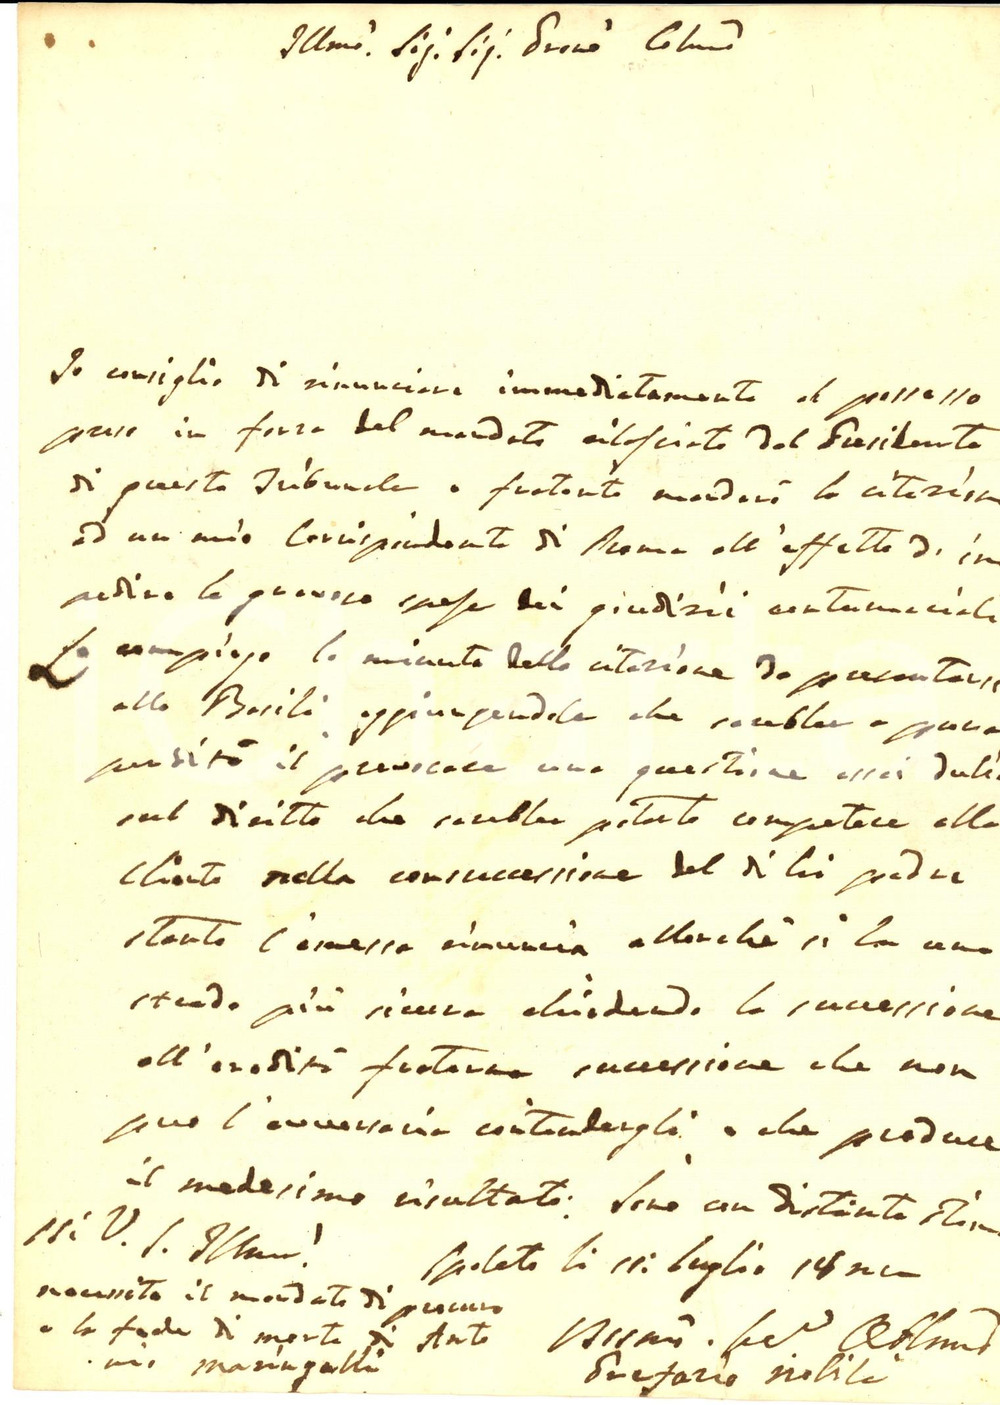 Illmo. Sig. Sig. Prone Colmo
Io consiglio di rinunciare immediatamente al possesso
preso in forza del mandato rilasciato dal Presidente
di questo Tribunale e frattanto manderò la citazion
ad un mio Corrispondente di Roma all'effetto di im
pedire le gravose spese dei giudizii contumaciali
Le compiego la minuta della citazione da presentarsi
alla Basili aggiungendole che sarebbe a pura
perdita il provocare una questione assai dubi
sul diritto che sarebbe potuto competere alla
Cliente nella consuccessione del di lei padre
stante l'emessa rinuncia allorché si ha una
strada più sicura chiedendo la successione
all'eredità fraterna successione che non
può l'avversaria contendergli e che produce
il medesimo risultato. Sono con distinta stim
V. S. Illma
Spoleto li luglio
necessita il mandato di procura
e la fede di morte di Anto
nio Maringalli
Obblmo
Prefazio Nobili